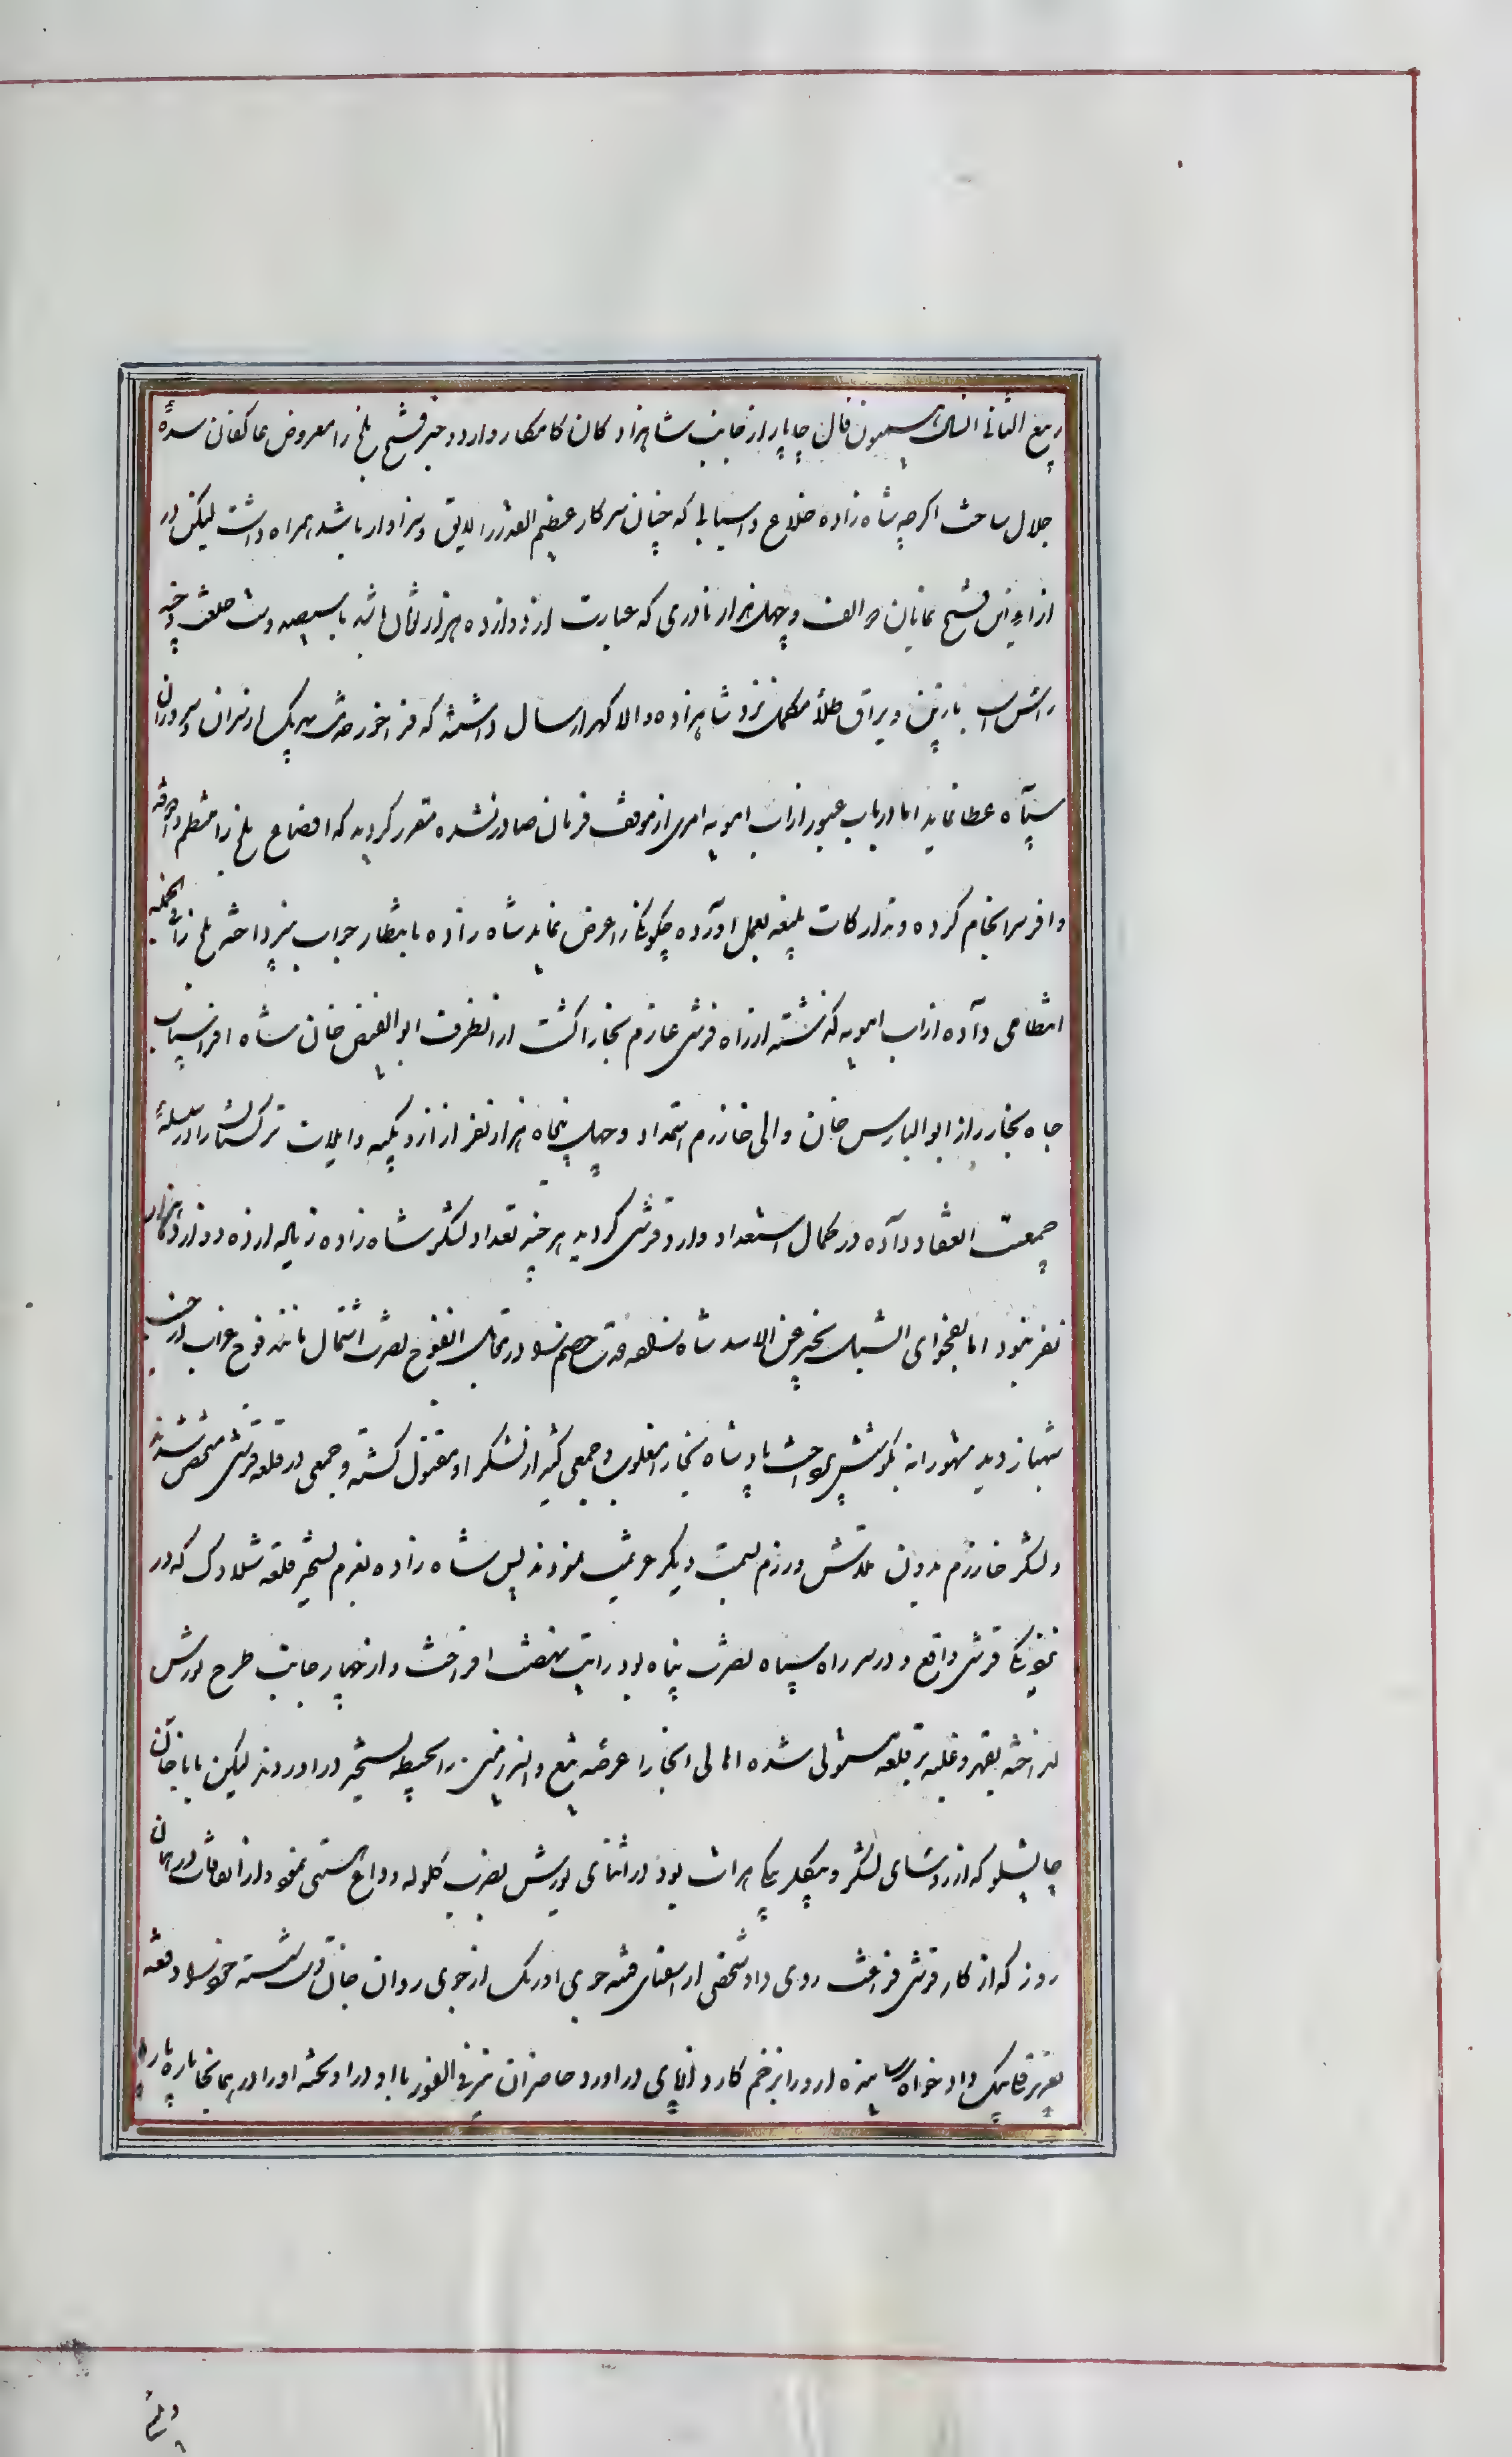 ربیع الثانی السنه میمون فال چاپار از جانب شاهزاد کان کامکار وارد و خبر فتح بلخ را معروض عاکفان سدهٔ
جلال ساخت اکرچه شاه زاده خلاع و اسبابی که چنان سرکار عظیم القدر را لایق و سزاوار باشد همراه داشت لیکن در
ازاء این فتح نمایان الف و چهل هزار نادری که عبارت از دوازده هزار تومان باشد با سیصد دست خلعت و چند
راس اسب با زین و یراق طلا مکمل نزد شاهزاده والا کهر ارسال داشته که فراخور خدمت هر یک از سران و سروران
سپاه عطا نماید اما در باب عبور از اب امویه امری از موقف فرمان صادر نشده مقرر کردید که اوضاع بلخ را منتظم و
وافر سرانجام کرده و تدارکات بلیغه بعمل اورده چکونکی را عرض نماید شاه زاده بانتظار جواب نپرداخته بلخ را فی الجمله
انتظامی داده از اب امویه کذشته از راه قرشی عازم بخارا کشت از انطرف ابوالفیض خان شاه افراسیاب
جاه بخارا از ابوالبارس خان والی خارزم استمداد و چهل پنجاه هزار نفر از ازبکیه و ایلات ترکستان را در سلک
جمعیت انعقاد داده در کمال استعداد وارد قرشی کردید هر چند تعداد لشکر شاه زاده زیاده از ده دوازده هزار
نفر نبود اما بفحوای الشبل یخبر عن الاسد شاه قدرت خصم در مقابل انفوج نصرت اشتمال مانند فوج غراب از جنب
شهباز دید متهورانه بکوشش پرداخت پادشاه بخارا مغلوب و جمعی کثیر از لشکر او مقتول کشته و جمعی در قلعه قرشی متحصن شدند
و لشکر خارزم بدون تلاش و رزم بسمت دیکر عزیمت نمودند پس شاه زاده بعزم تسخیر قلعه شلدوک که در
نزدیکی قرشی واقع و در سر راه سپاه نصرت پناه بود رایت نهضت افراخت و از چهار جانب طرح یورش
انداخته بقهر و غلبه بر قلعه مستولی شده اهالی انجا را عرضه تیغ و السرزمین را بحیطه تسخیر دراوردند لیکن بابا خان
چاپشلو که از رؤسای لشکر و بیکلر بیکی هرات بود در اثنای یورش بضرب کلوله وداع هستی نمود و از اتفاقات در همان
روز که از کار قرشی فراغت روی داد شخصی از اشقیای فتنه جوی اوزبک از جوی روان جان دست شسته خود را دفعه
بتقریب داد خواه بشاهزاده او را بزخم کارد از پای دراورد و حاضران نیز فی الفور با او دراویخته او را در همانجا پاره پاره